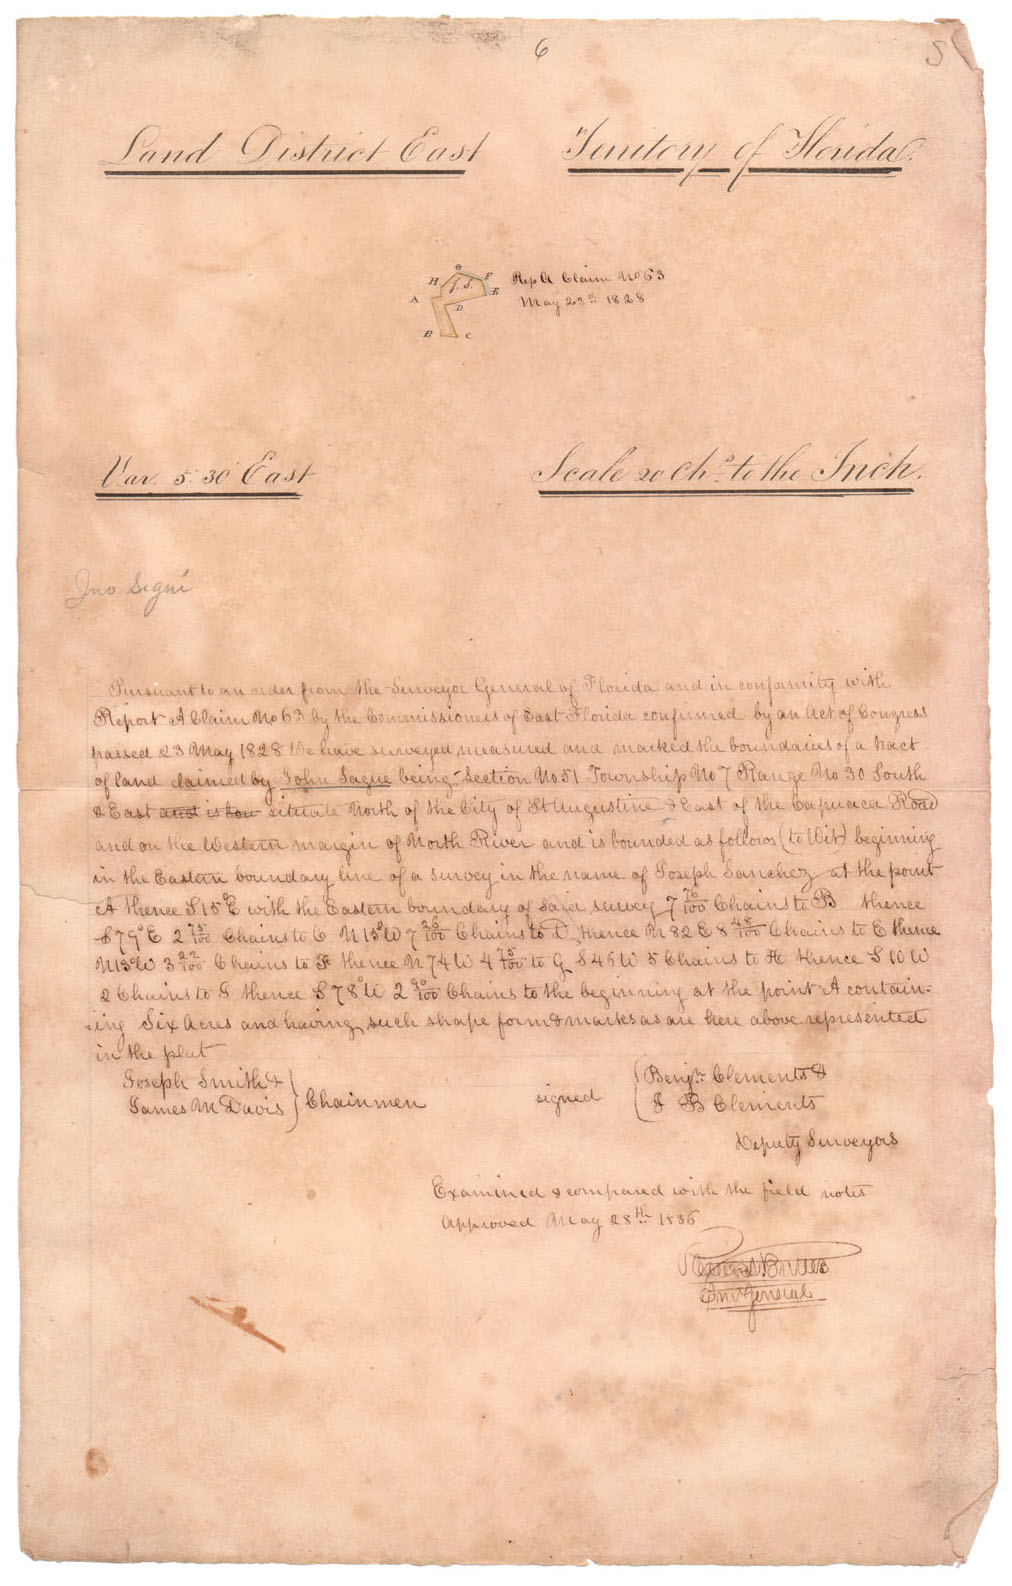 6
S
Land District East Territory of Florida.
G
H F
J. S. E
A
D
B C
Rep A Claim No 63
May 23d 1828
Var. 5° 30' East Scale 20 Chs to the Inch.
Jno Segui
Pursuant to an order from the Surveyor General of Florida and in conformity with
Report A Claim No 63 by the Commissioners of East Florida confirmed by an Act of Congress
passed 23 May 1828 We have surveyed measured and marked the boundaries of a tract
of land claimed by John Sague being Section No 51 Township No 7 Range No 30 South
& East and is situate North of the City of St Augustine & East of the Capuaca Road
and on the Western margin of North River and is bounded as follows (to Wit) beginning
in the Eastern boundary line of a survey in the name of Joseph Sanchez at the point
A thence S 15° E with the Eastern boundary of said survey 7 76/100 Chains to B thence
S 79° E 2 75/100 Chains to C N 15° W 7 26/100 Chains to D thence N 82 E 8 48/100 Chains to E thence
N 15° W 3 22/100 Chains to F thence N 74 W 4 75/100 to G S 46 W 5 Chains to H thence S 10 W
2 Chains to J thence S 78° W 2 90/100 Chains to the beginning at the point A contain-
=ing Six Acres and having such shape form & marks as are here above represented
in the plat
Joseph Smith &
James M Davis } Chainmen signed { Benjn Clements &
J B Clements
Deputy Surveyors
Examined & compared with the field notes
Approved May 28th 1836
Surv General